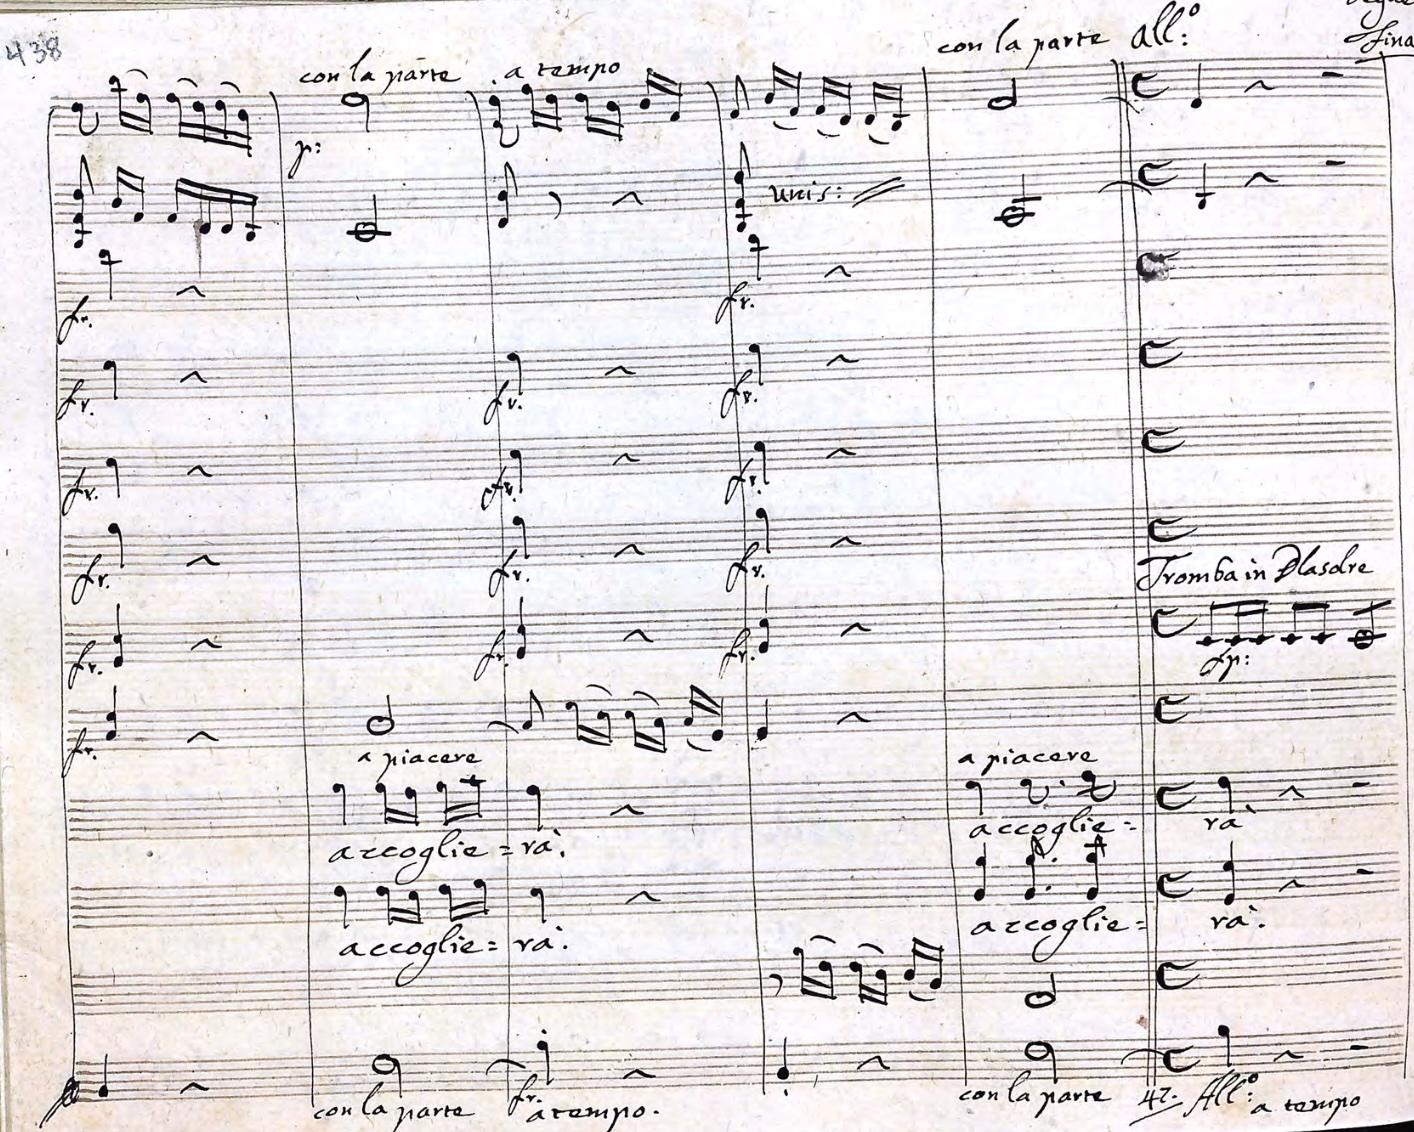 438
con la parte a tempo con la parte All.º
Segue
Fina
p:
unis:
fr. fr.
fr. fr. fr.
fr. fr. fr.
fr. fr. fr.
Tromba in Dlasolre
fr. fr. fr. fp:
fr.
a piacere a piacere
accoglie = rà. accoglie = rà
accoglie = rà. accoglie = rà.
con la parte fr. a tempo. con la parte 47. All.º a tempo